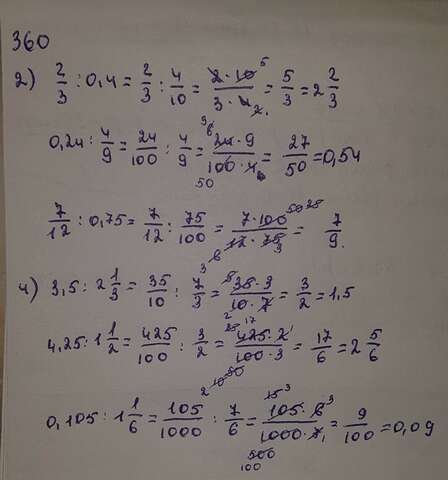 360
2) 2/3 : 0,4 = 2/3 : 4/10 = 2·10 5/3·4 2 = 5/3 = 2 2/3
0,24 : 4/9 = 24/100 : 4/9 = 6 24·9/100·4 50 = 27/50 = 0,54
7/12 : 0,75 = 7/12 : 75/100 = 7·100 50 25/12·75 6 3 3 = 7/9.
4) 3,5 : 2 1/3 = 35/10 : 7/3 = 5 35·3/10·7 2 = 3/2 = 1,5
4,25 : 1 1/2 = 425/100 : 3/2 = 17 425·2 1/100·3 50 10 2 = 17/6 = 2 5/6
0,105 : 1 1/6 = 105/1000 : 7/6 = 15 3 105·6 3/1000·7 1 500 100 = 9/100 = 0,09